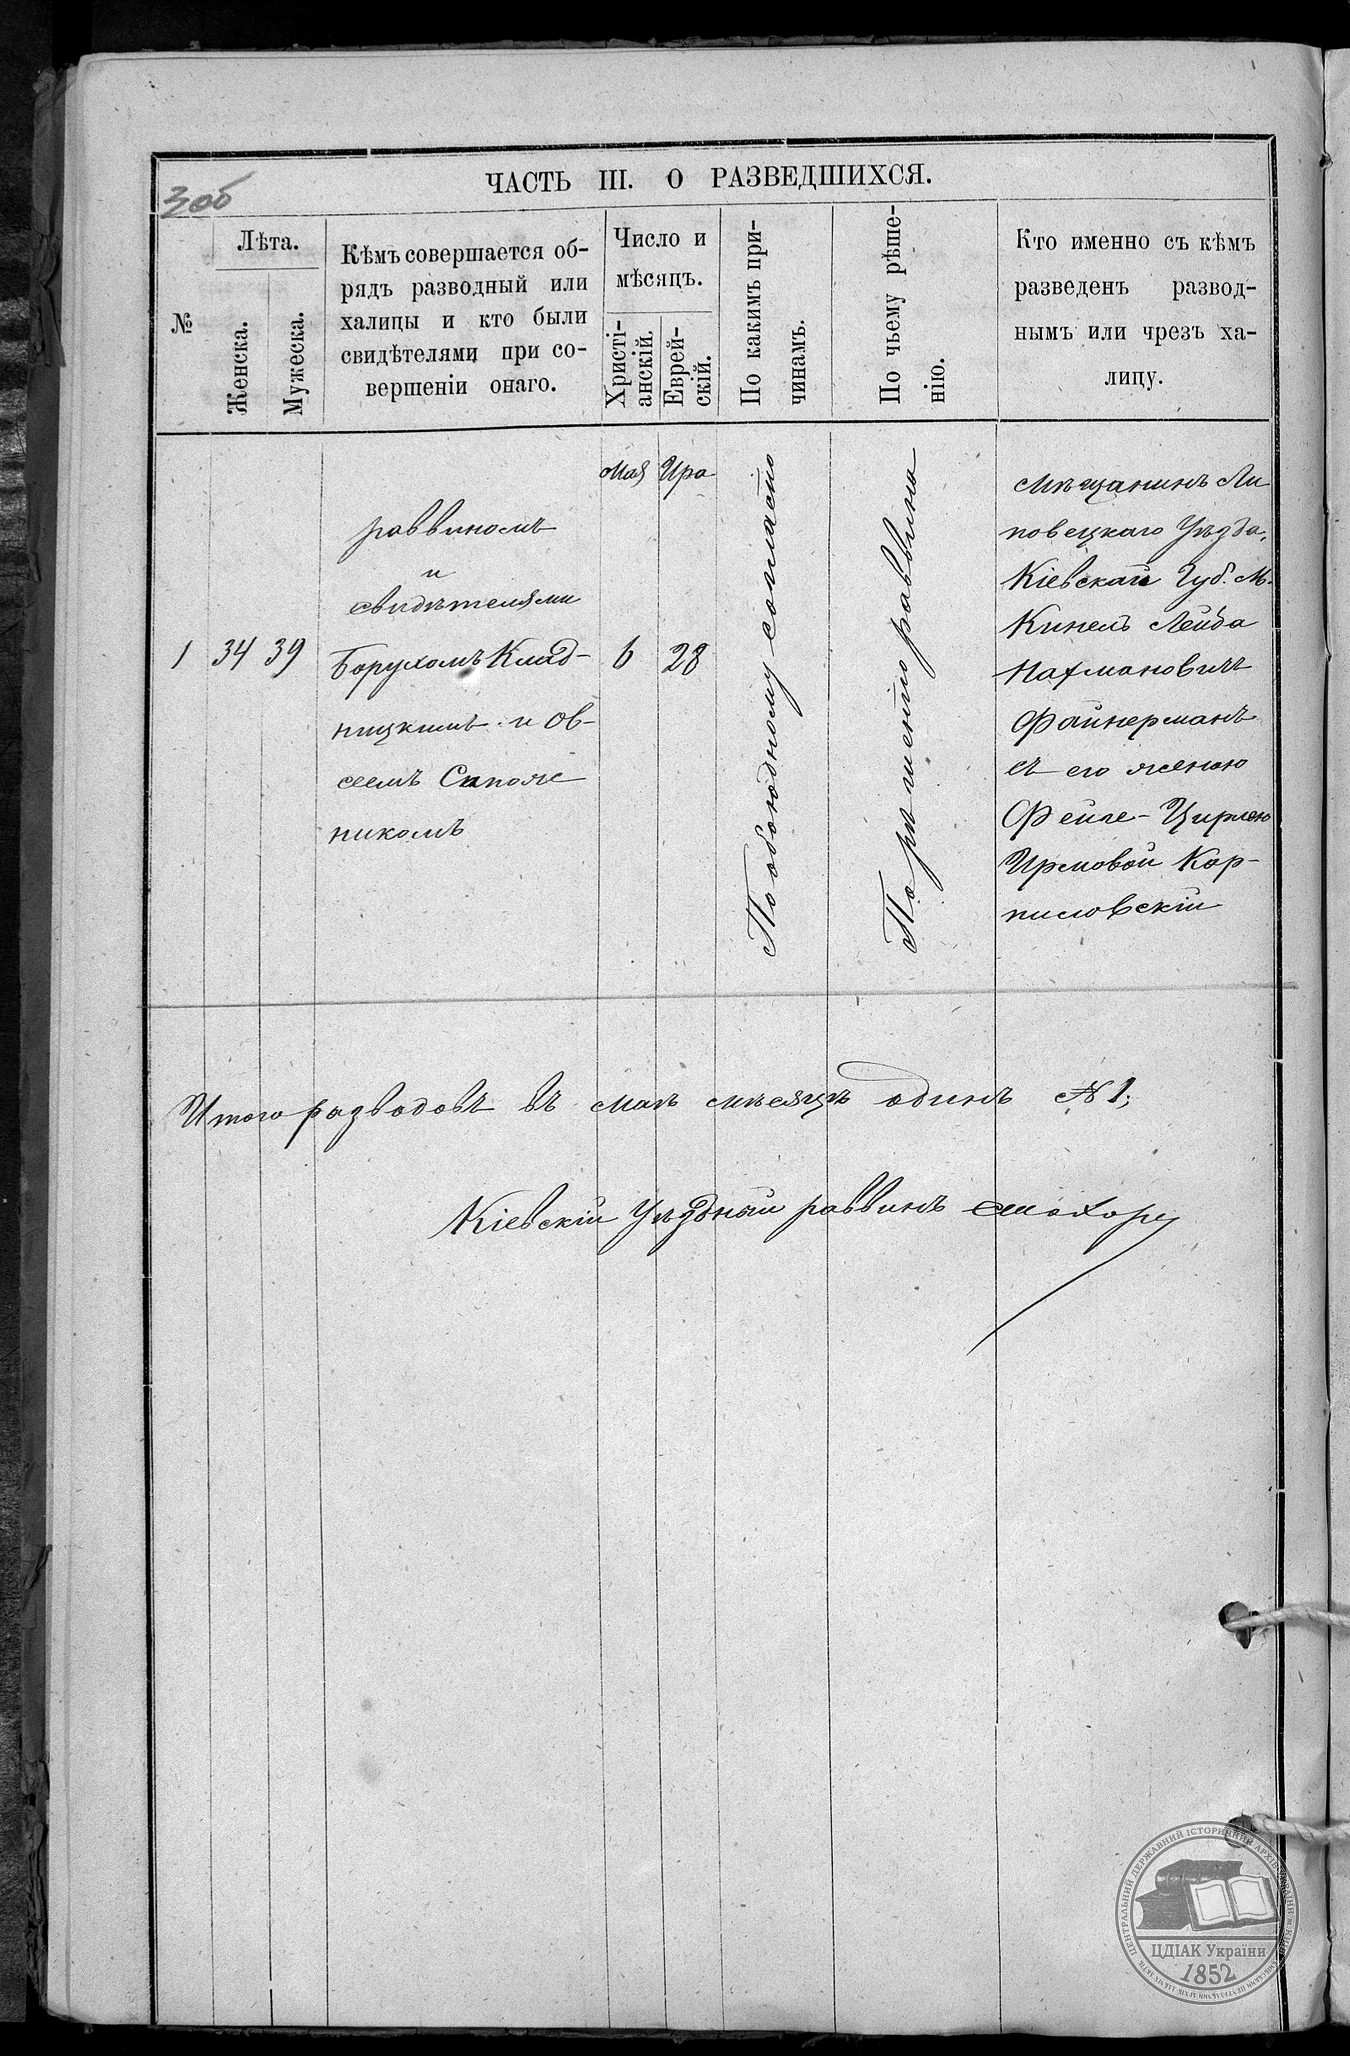 3об
ЧАСТЬ III. О РАЗВЕДШИХСЯ.
№
Лѣта.
Женска.
Мужеска.
Кѣмъ совершается об-
рядъ разводный или
халицы и кто были
свидѣтелями при со-
вершеніи онаго.
Число и
мѣсяцъ.
Христі-
анскій.
Еврей-
скій.
По какимъ при-
чинамъ.
По чьему рѣше-
нію.
Кто именно съ кѣмъ
разведенъ развод-
нымъ или чрезъ ха-
лицу.
1
34
39
раввиномъ
и
свидѣтелями
Борухомъ Клад-
ницкимъ и Ов-
сеемъ Сапож
никомъ
Мая
6
Ира
28
По обоюдному согласію
По рѣшенію раввина
Мѣщанинъ Ли
повецкаго Уѣзда,
Кіевской Губ. М.
Кинелъ Лейба
Нахмановичъ
Файнерманъ
съ его женою
Фейге-Цирлею
Ирмовой Кор-
писловскій
Итого разводовъ въ маѣ мѣсяцѣ одинъ № 1;
Кіевскій Уѣздный раввинъ
ЦЕНТРАЛЬНИЙ ДЕРЖАВНИЙ ІСТОРИЧНИЙ АРХІВ УКРАЇНИ
ЦДІАК України
1852